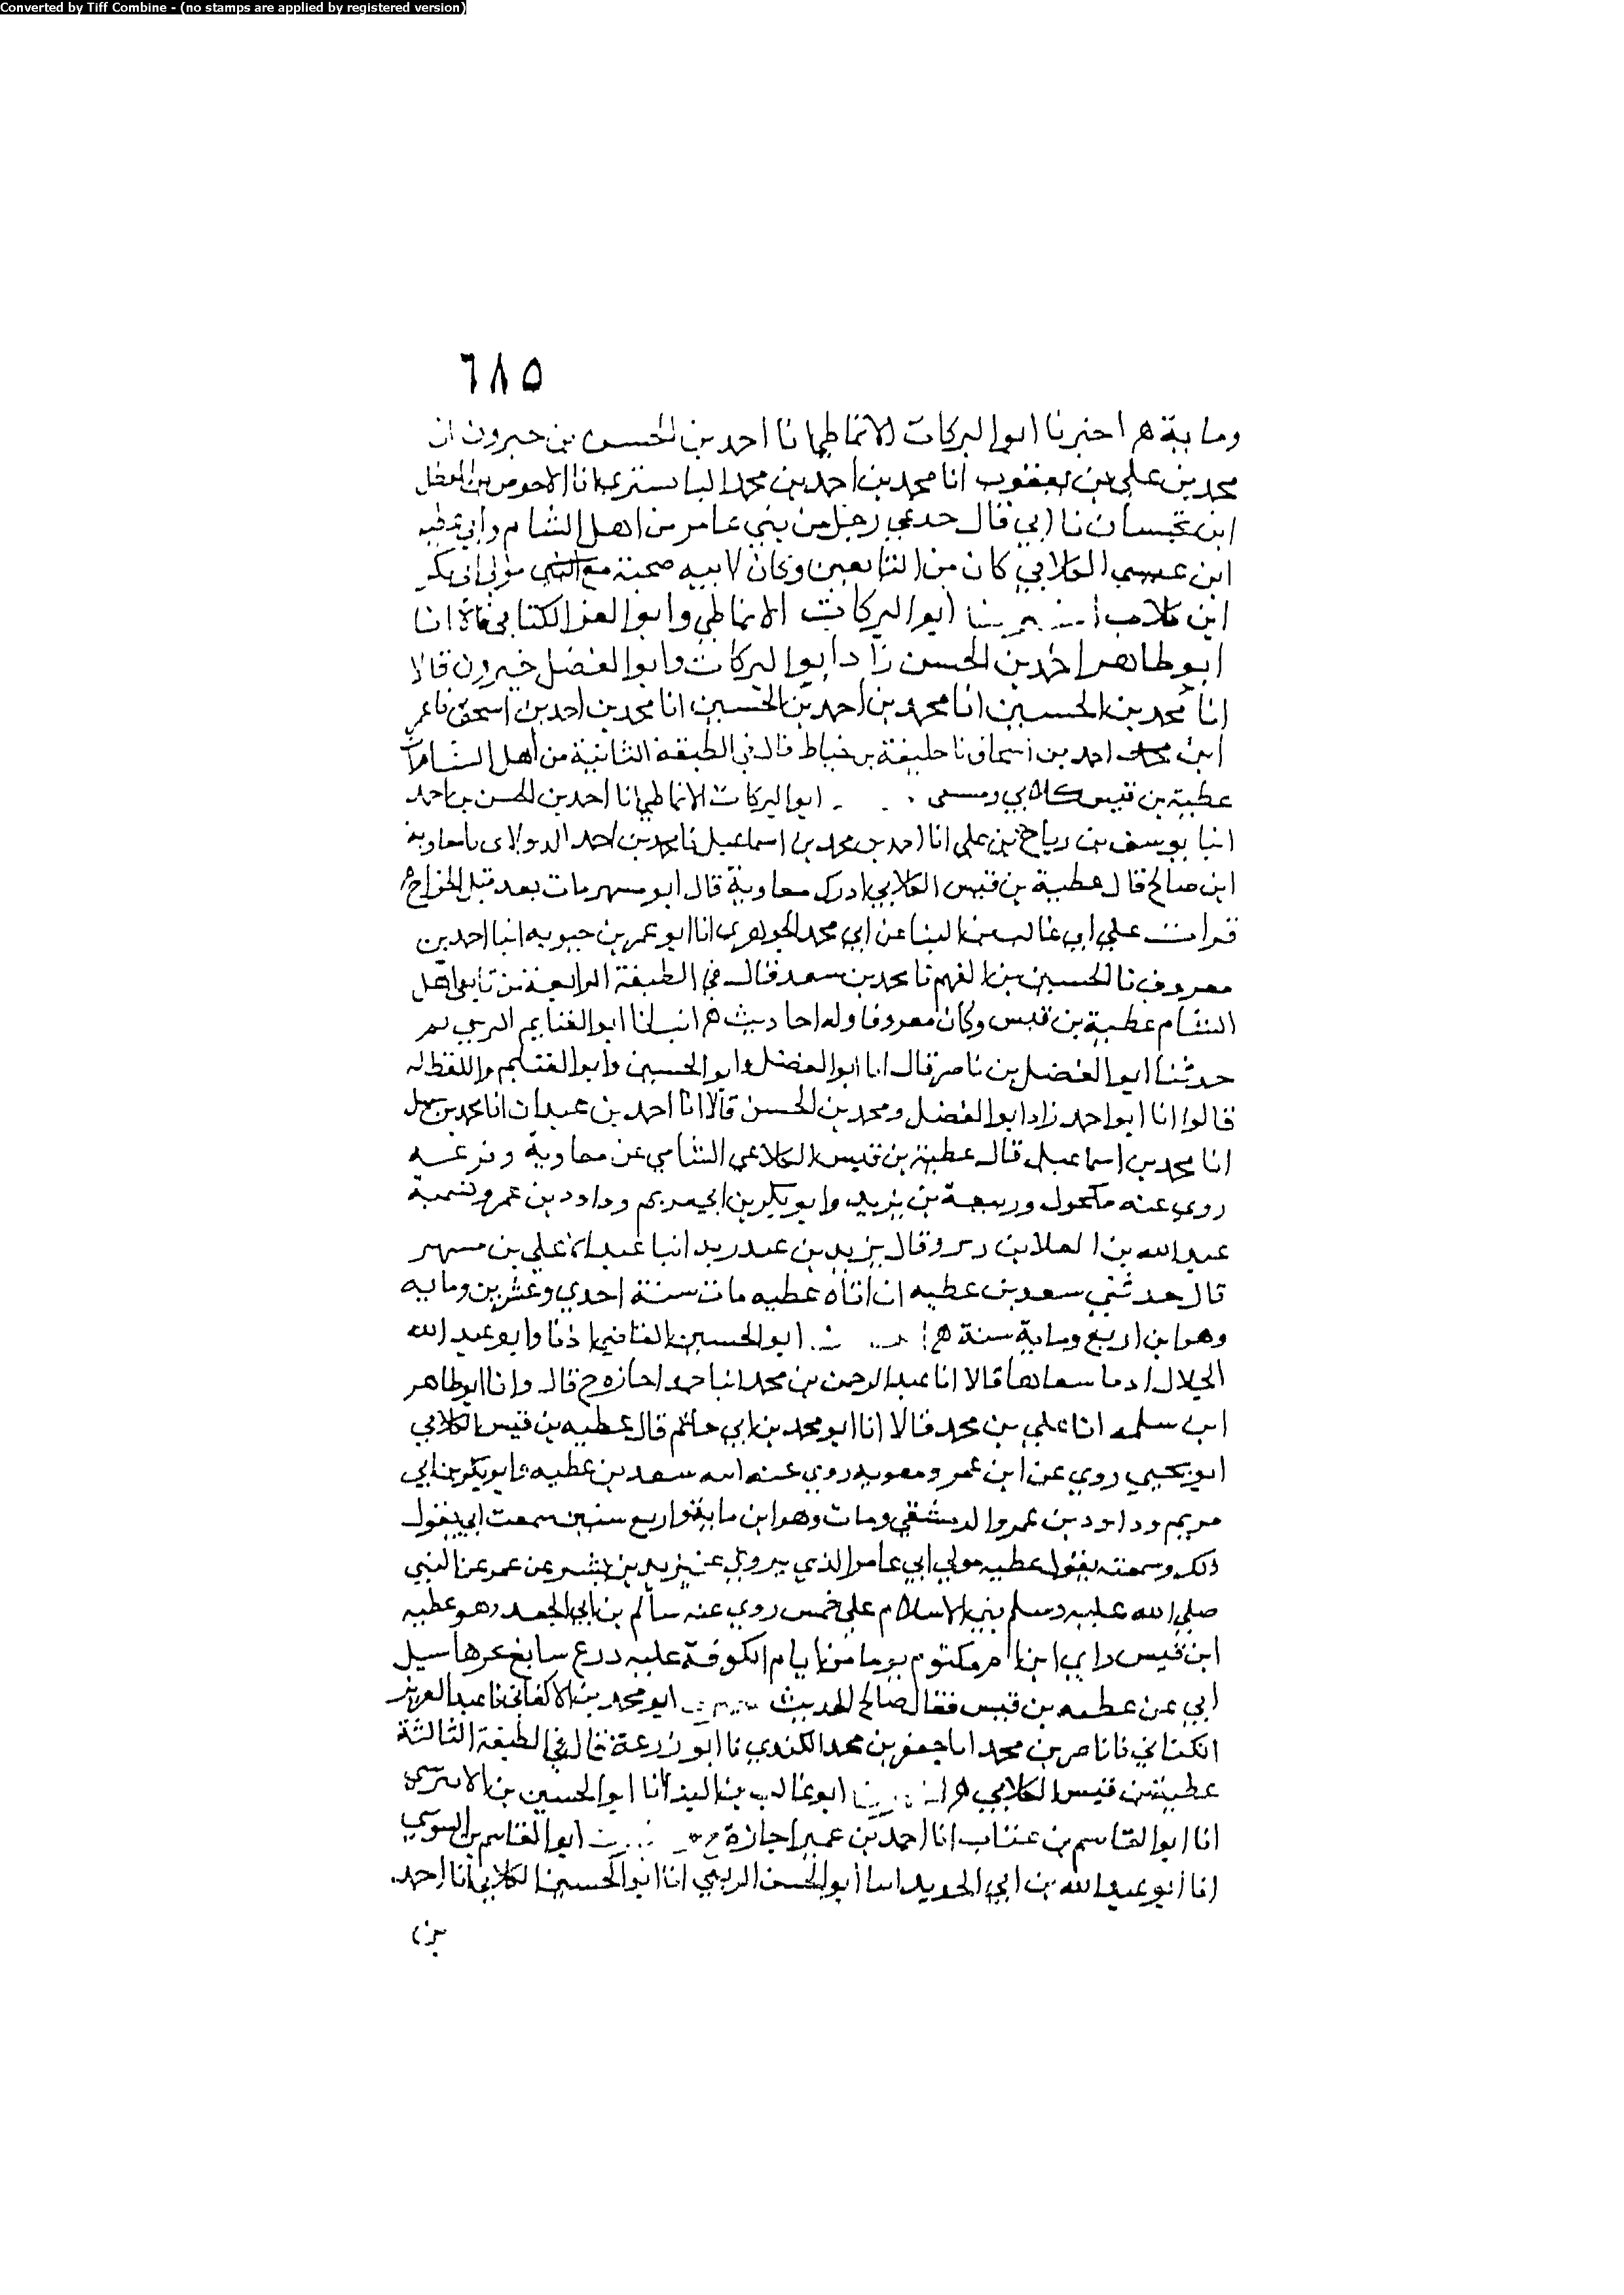 Converted by Tiff Combine - (no stamps are applied by registered version)
٦٨٥
وماية ه اخبرنا ابوالبركات الانماطي انا احمد بن الحسن بن خيرون ان
محمد بن علي بن يعقوب انا محمد بن احمد بن محمد البابسيري انا الاحوص بن المفضل
ابن غسان نا ابي قال حدثني رجل من بني عامر من اهل الشام وابي عطيه
ابن الكلابي كان من التابعين وكان لابيه صحبة مع مولى ابي بكر
ابن كلاب ابوالبركات الانماطي وابوالعز الكتابي قالا انا
ابوطاهر احمد بن الحسن زاد ابوالبركات وابوالفضل خيرون قالا
انا محمد بن الحسين انا محمد بن احمد بن الحسين انا محمد بن احمد بن اسحق نا عمر
ابن احمد بن اسحاق نا خليفة بن خياط قال في الطبقة الثانية من اهل الشامات
عطية بن قيس كلابي ابوالبركات الانماطي انا احمد بن الحسن بن احمد
انبا يوسف بن رباح بن علي انا احمد بن محمد بن اسماعيل نا محمد بن احمد الدولابي نا معاوية
ابن صالح قال عطية بن قيس الكلابي ادرك معاوية قال ابو مسهر مات بعد قتل الجراح
قرات علي ابي غالب بن البنا عن ابي محمد الجوهري انا ابو عمر بن حيويه انبا احمد بن
معروف نا الحسين بن الفهم نا محمد بن سعد قال في الطبقة الرابعة من تابعي اهل
الشام عطية بن قيس وكان معروفا وله احاديث ه انبانا ابوالغنايم النرسي ثم
حدثنا ابوالفضل بن ناصر قال انا ابوالفضل وابوالحسين وابوالغنايم واللفظ له
قالوا انا ابواحمد زاد ابوالفضل ومحمد بن الحسن قالا انا احمد بن عبدان انا محمد بن سهل
انا محمد بن اسماعيل قال عطية بن قيس الكلاعي الشامي عن معاوية وقزعه
روي عنه مكحول وربيعة بن يزيد وابوبكر بن ابي مريم وداود بن عمرو نسبة
عبدالله بن العلا بن زبر وقال يزيد بن عبدربه انبا عبدالاعلي بن مسهر
قال حدثني سعد بن عطيه ان اباه عطيه مات سنة احدي وعشرين ومايه
وهو ابن اربع وماية سنة ه ابوالحسين القاضي اذنا وابوعبدالله
الخلال قالا انا عبدالرحمن بن محمد انبا حمد اجازه ح قال وانا ابوطاهر
ابن سلمه انا علي بن محمد قالا انا ابومحمد بن ابي حاتم قال عطيه بن قيس الكلابي
ابويحيي روي عن ابن عمر ومعويه روي عنه ابنه سعد بن عطيه وابوبكر بن ابي
مريم وداود بن عمرو الدمشقي ومات وهو ابن ماية واربع سنين سمعت ابي يقول
ذلك وسمعته يقول عطيه مولي ابي عامر الذي يروي عن يزيد بن بشر عن عمر عن النبي
صلي الله عليه وسلم بني الاسلام علي خمس روي عنه سالم بن ابي الجعد وهو عطيه
ابن قيس راي ابن ام مكتوم يوما من ايام الكوفة عليه درع سابغ يجرها سيل
ابي عن عطيه بن قيس فقال صالح الحديث ابومحمد بن الاكفاني نا عبدالعزيز
الكتاني نا ناصر بن محمد انا جعفر بن محمد الكندي نا ابوزرعة قال في الطبقة الثالثة
عطية بن قيس الكلابي ه ابوغالب بن البنا انا ابوالحسين بن الابنوسي
انا ابوالقاسم بن عتاب انا احمد بن عمير اجازة ح ابوالقاسم بن السوسي
انا ابوعبدالله بن ابي الحديد انبا ابوالحسن الربعي انا ابوالحسين الكلابي انا احمد
بن